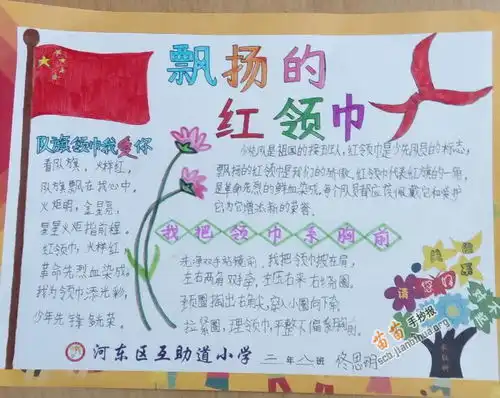 飘扬的
红领巾
队旗领巾我爱你
看队旗，火样红，
队旗飘在我心中。
火炬明，金星亮，
星星火炬指前程。
红领巾，火样红，
革命先烈血染成。
我为领巾添光彩，
少年先锋多光荣。
少先队是祖国的接班人，红领巾是少先队员的标志，
飘扬的红领巾是我们的骄傲，红领巾代表红旗的一角，
是革命先烈的鲜血染成，每个队员都应该佩戴它和爱护
它为它增添新的荣誉。
我把领巾系胸前
先准双手站镜前，我把领巾搭在肩，
左右两角对牵，左压右来右角圈，
绕圈掏出右角尖，穿入小圈向下牵，
拉紧圈，理领巾，平整不偏系胸前。
河东区互助道小学 二年八班 佟思明
苗苗手抄报
scb.jianbihua.org